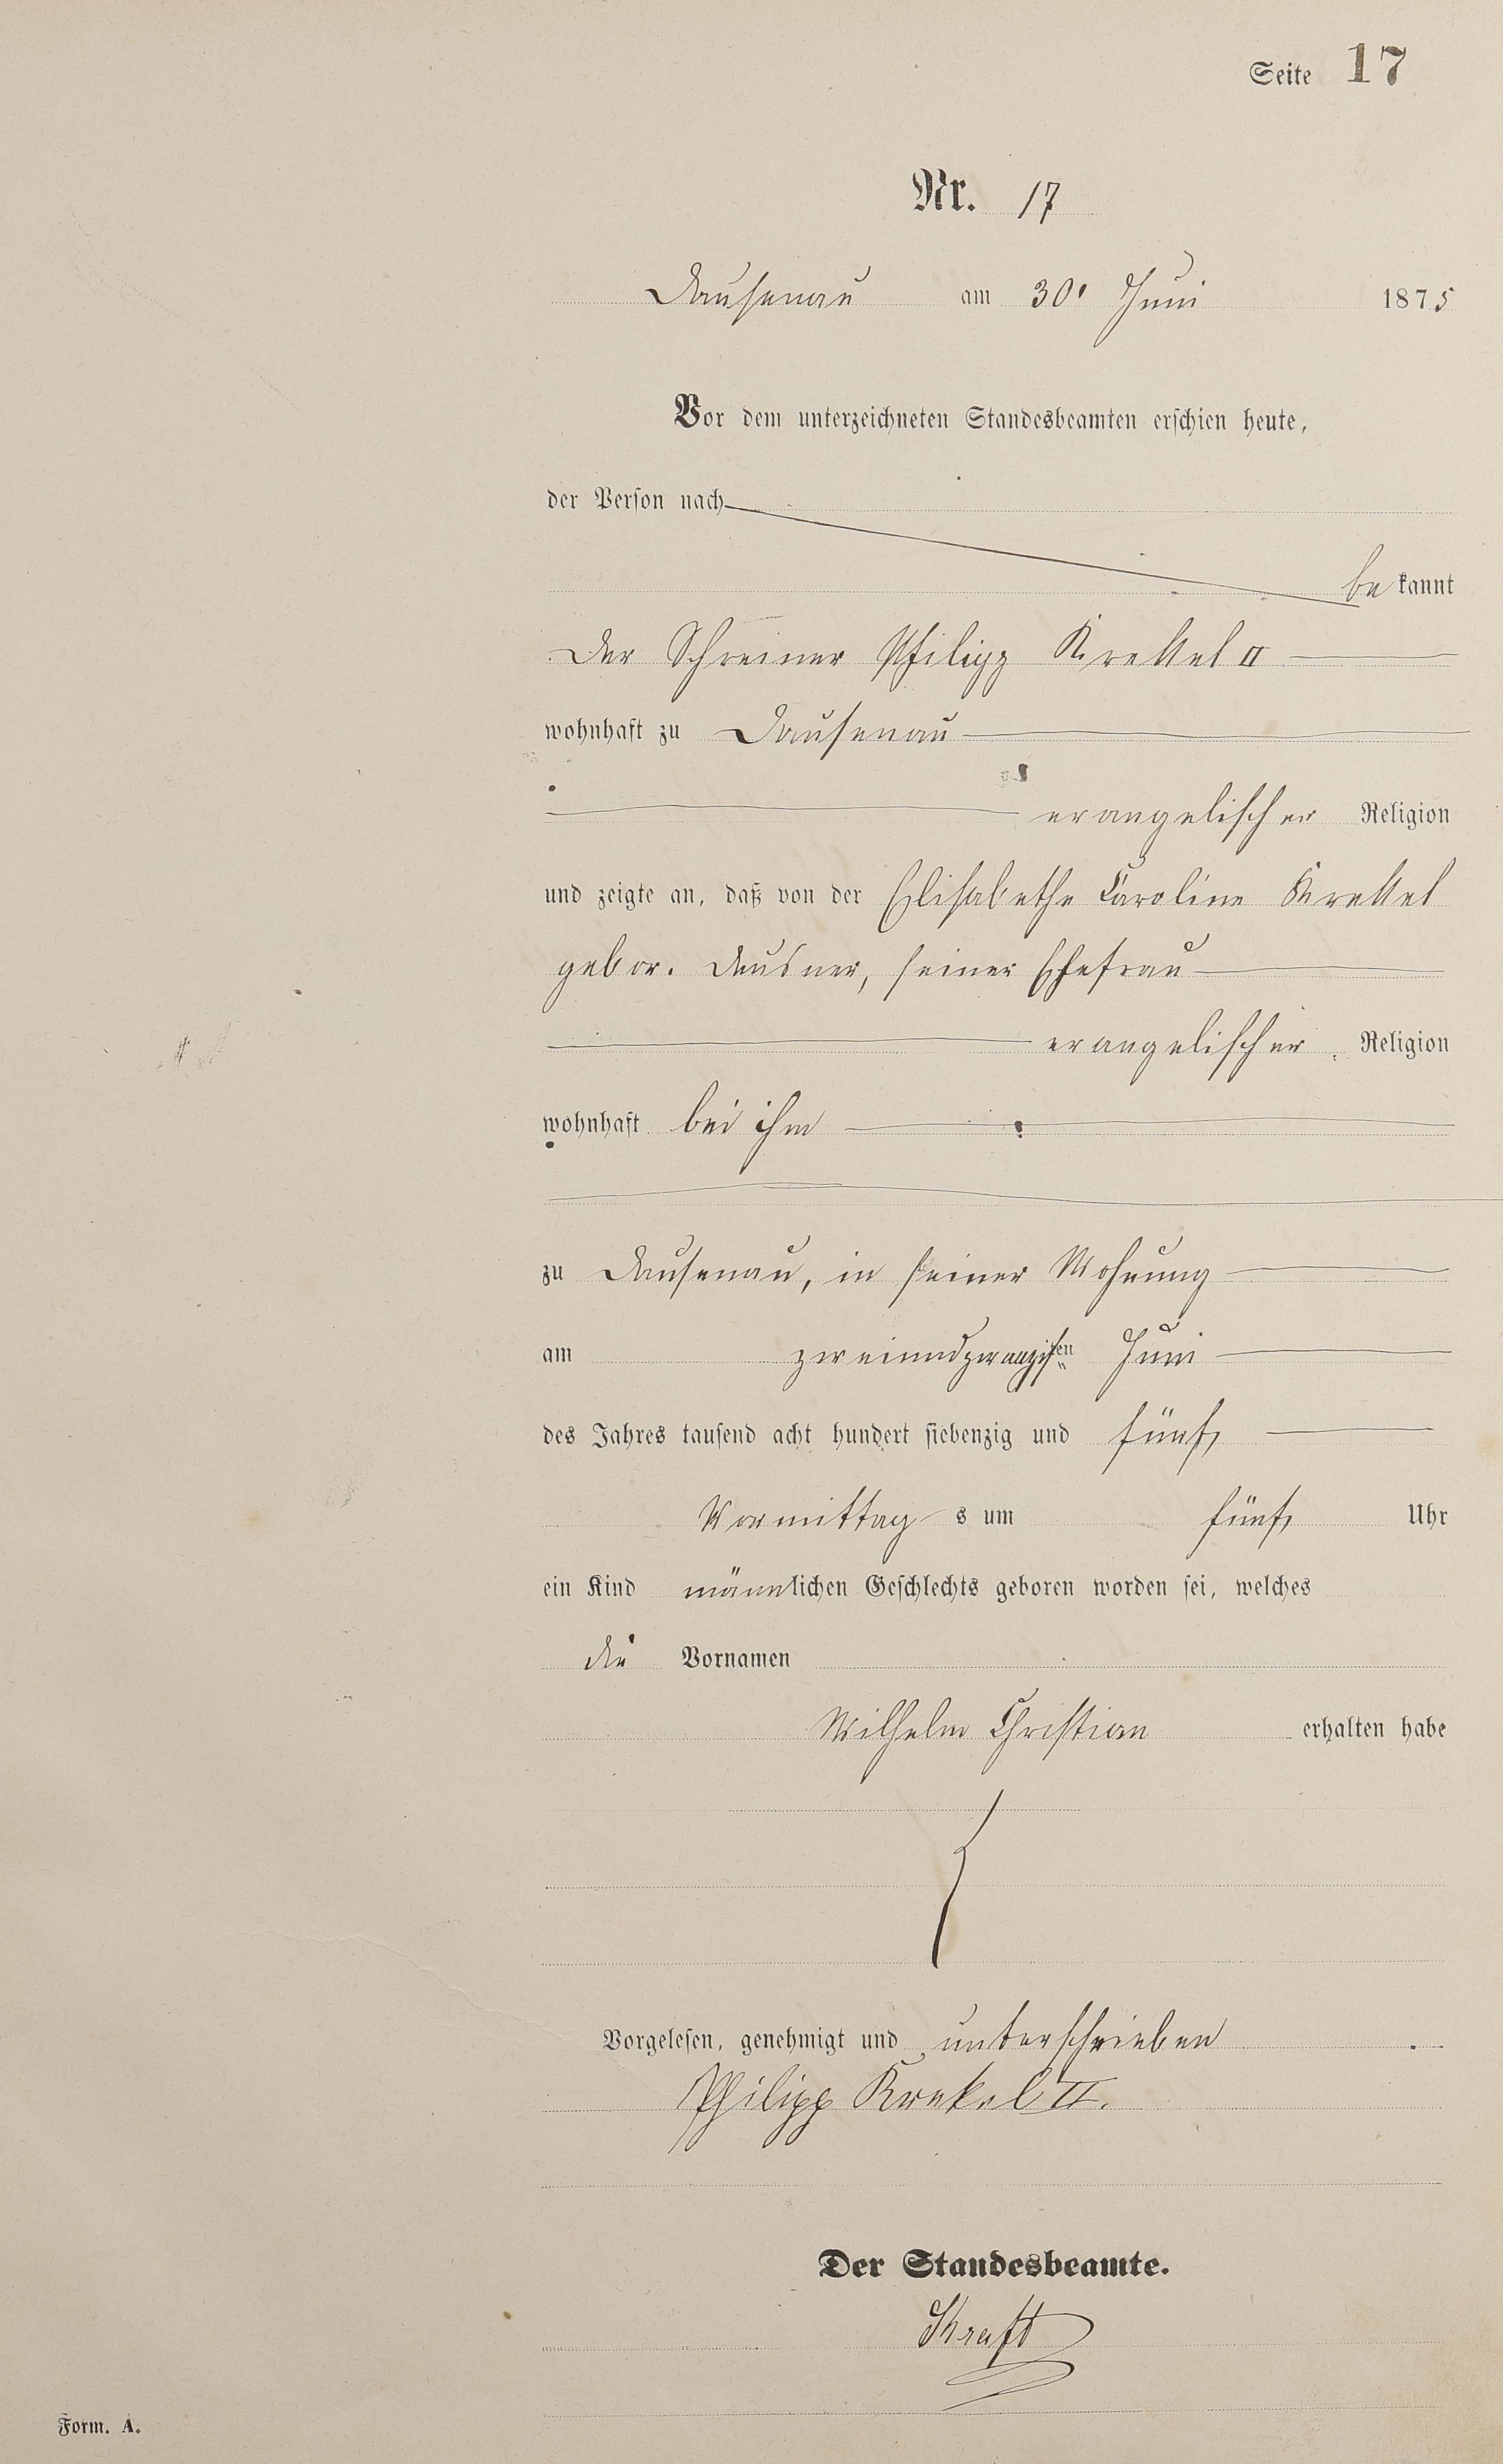 Seite 17
Nr. 17
Dausenau am 30' Juni 1875
Vor dem unterzeichneten Standesbeamten erschien heute,
der Person nach
bekannt
Der Schreiner Philipp Krekkel II
wohnhaft zu Dausenau
evangelischer Religion
und zeigte an, daß von der Elisabethe Caroline Krekkel
gebor. Deusner, seiner Ehefrau
evangelischer Religion
wohnhaft bei ihm
zu Dausenau, in seiner Wohnung
am zweiundzwanzigsten Juni
des Jahres tausend acht hundert siebenzig und fünf,
Vormittags um fünf, Uhr
ein Kind männlichen Geschlechts geboren worden sei, welches
die Vornamen
Wilhelm Christian erhalten habe
Vorgelesen, genehmigt und unterschrieben
Philipp Krekel II.
Der Standesbeamte.
Kraft
Form. A.